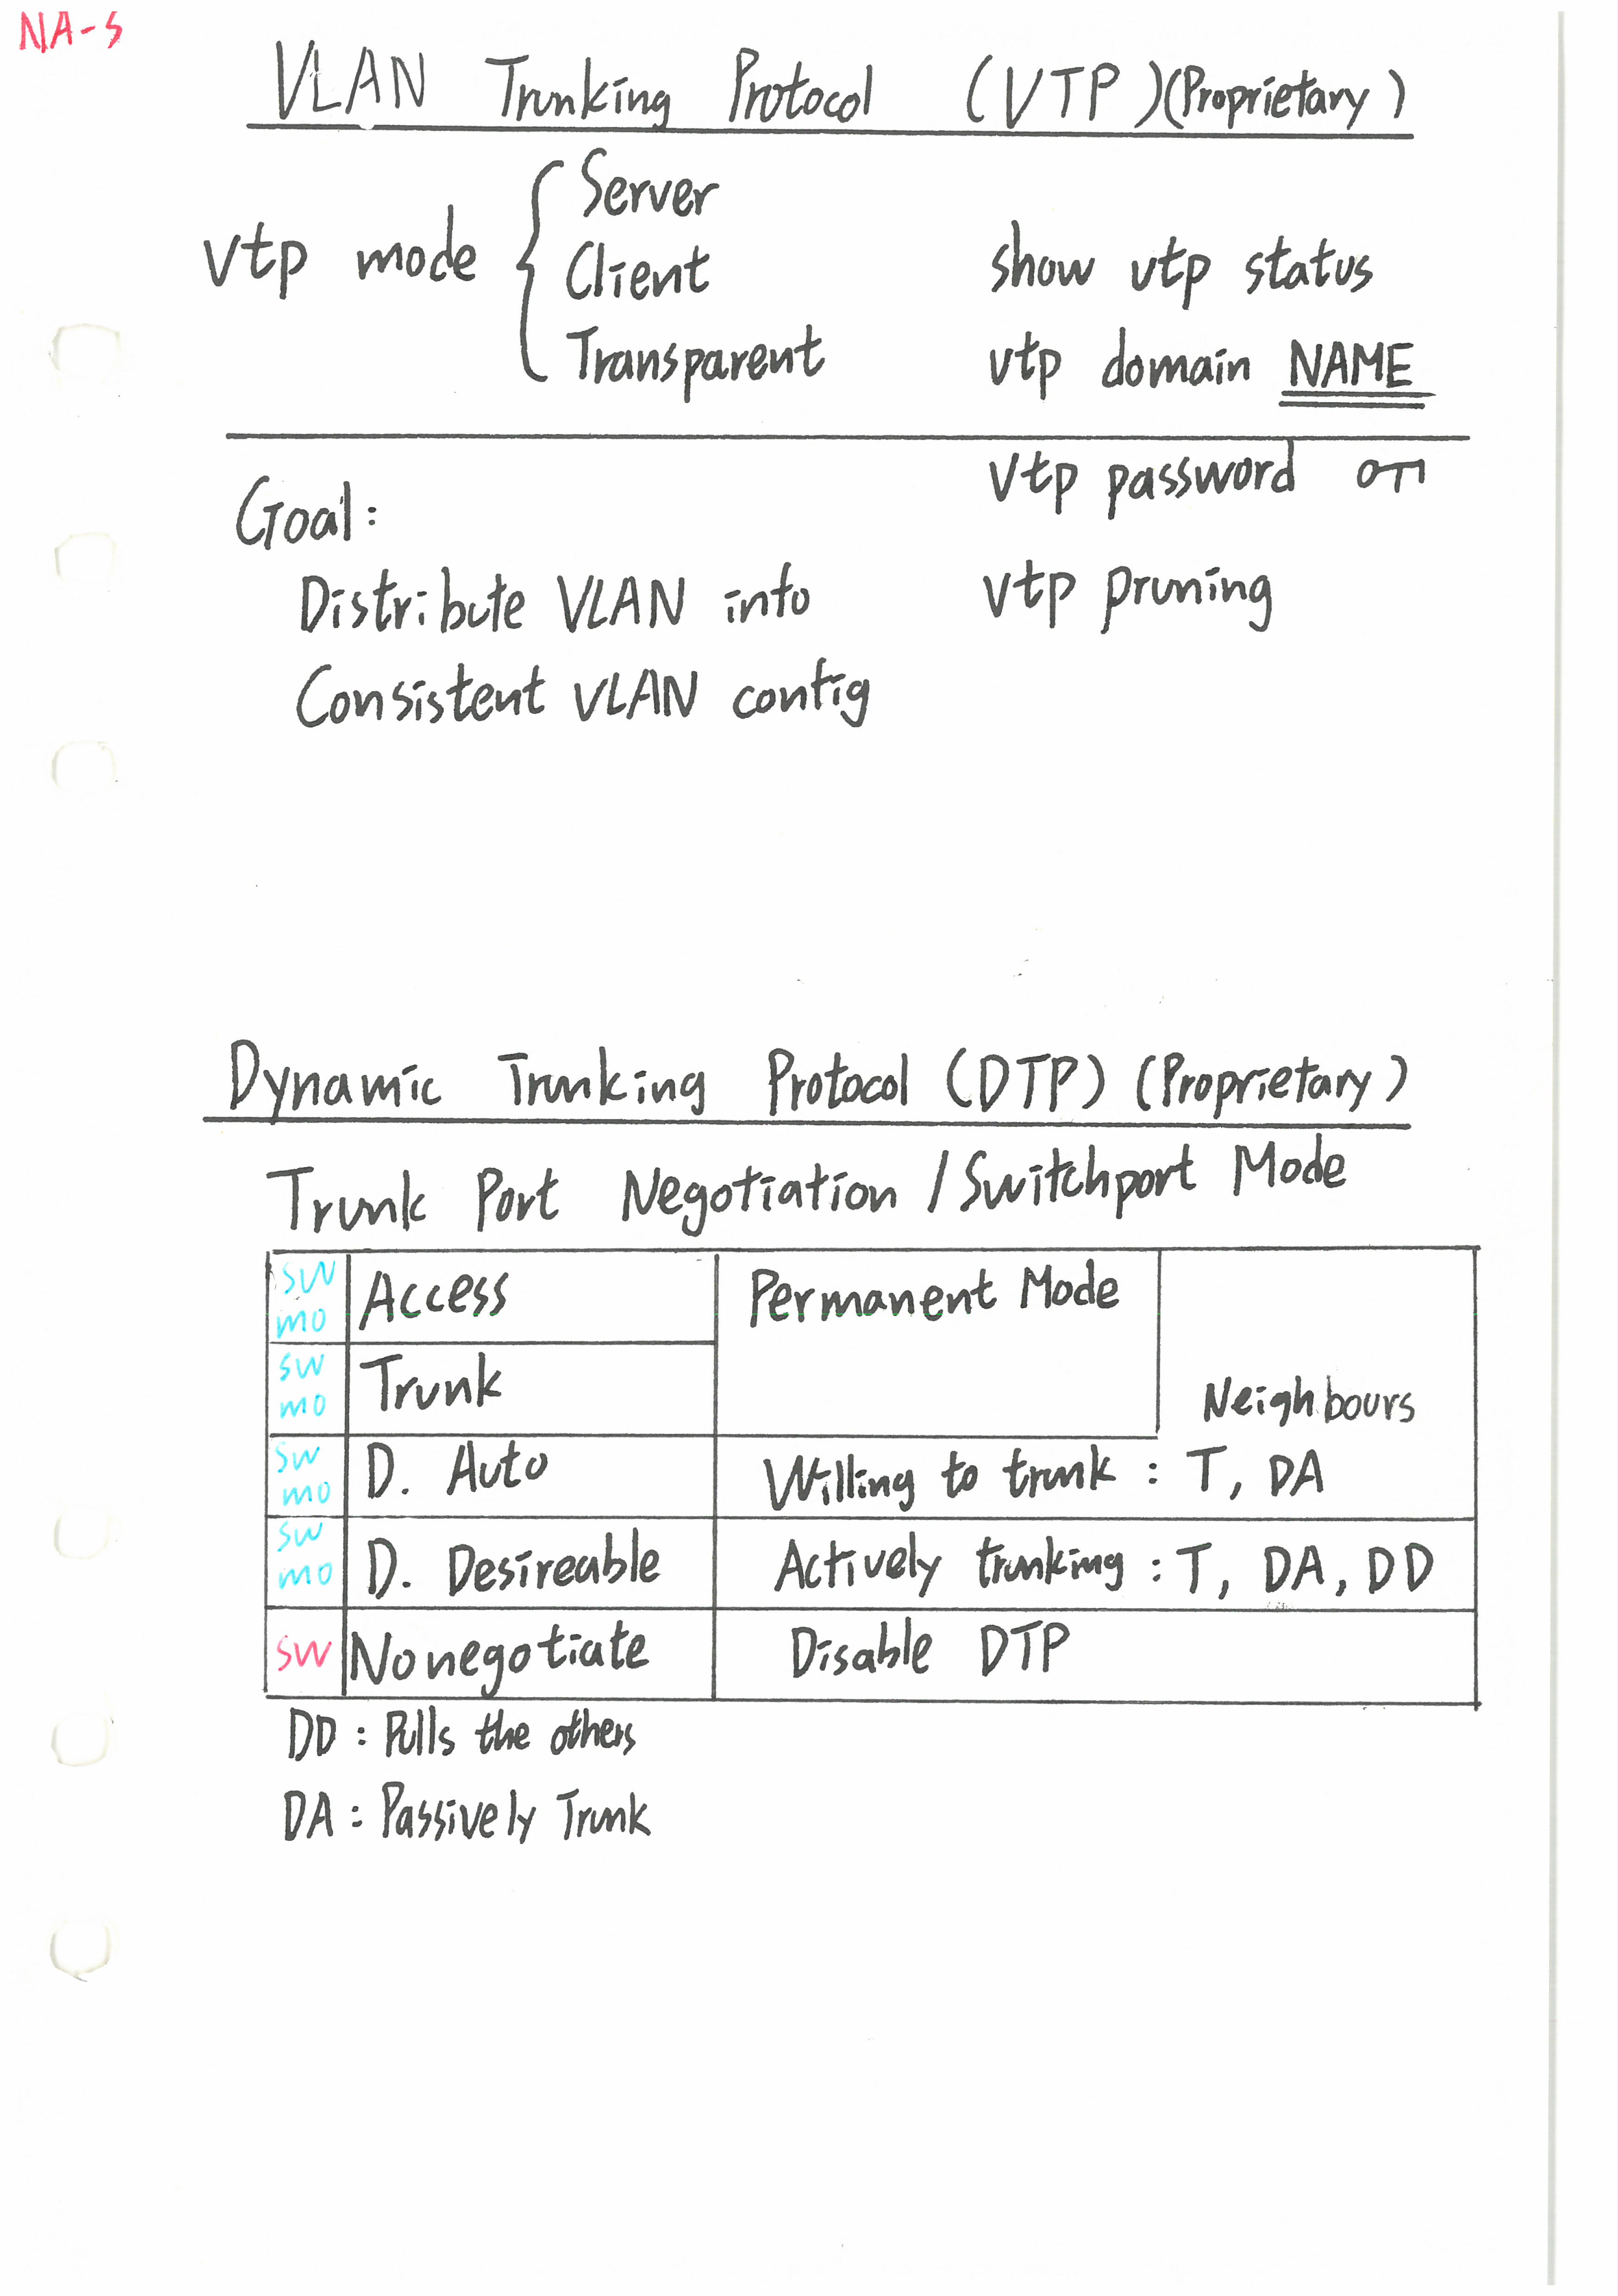 NA-S
VLAN Trunking Protocol (VTP)(Proprietary)
vtp mode { Server
Client
Transparent
show vtp status
vtp domain NAME
vtp password
vtp pruning
Goal:
Distribute VLAN info
Consistent VLAN config
Dynamic Trunking Protocol (DTP) (Proprietary)
Trunk Port Negotiation / Switchport Mode
sw mo Access Permanent Mode
sw mo Trunk Neighbours
sw mo D. Auto Willing to trunk : T, DA
sw mo D. Desireable Actively trunking : T, DA, DD
sw Nonegotiate Disable DTP
DD : Pulls the others
DA : Passively Trunk